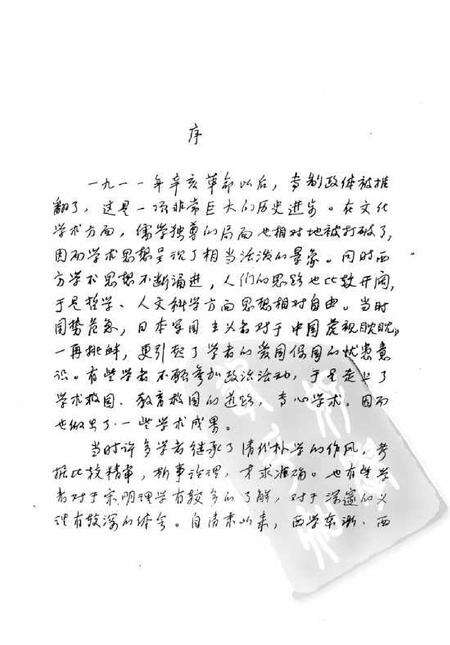 序
一九一一年辛亥革命以后，专制政体被推
翻了，这是一项非常巨大的历史进步。在文化
学术方面，儒学独尊的局面也相对地被打破了，
因而学术思想呈现了相当活泼的景象。同时西
方学术思想不断涌进，人们的思路也比较开阔，
于是哲学、人文科学方面思想相对自由。当时
国势危急，日本军国主义者对于中国虎视眈眈，
一再挑衅，更引起了学者的爱国保国的忧患意
识。有些学者不愿参加政治活动，于是走上了
学术救国、教育救国的道路，专心学术，因而
也做出了一些学术成果。
当时许多学者继承了清代朴学的作风，考
据比较精审，析事论理，力求准确。也有些学
者对于宋明理学有较多的了解，对于深邃的义
理有较深的体会。自清末以来，西学东渐，西